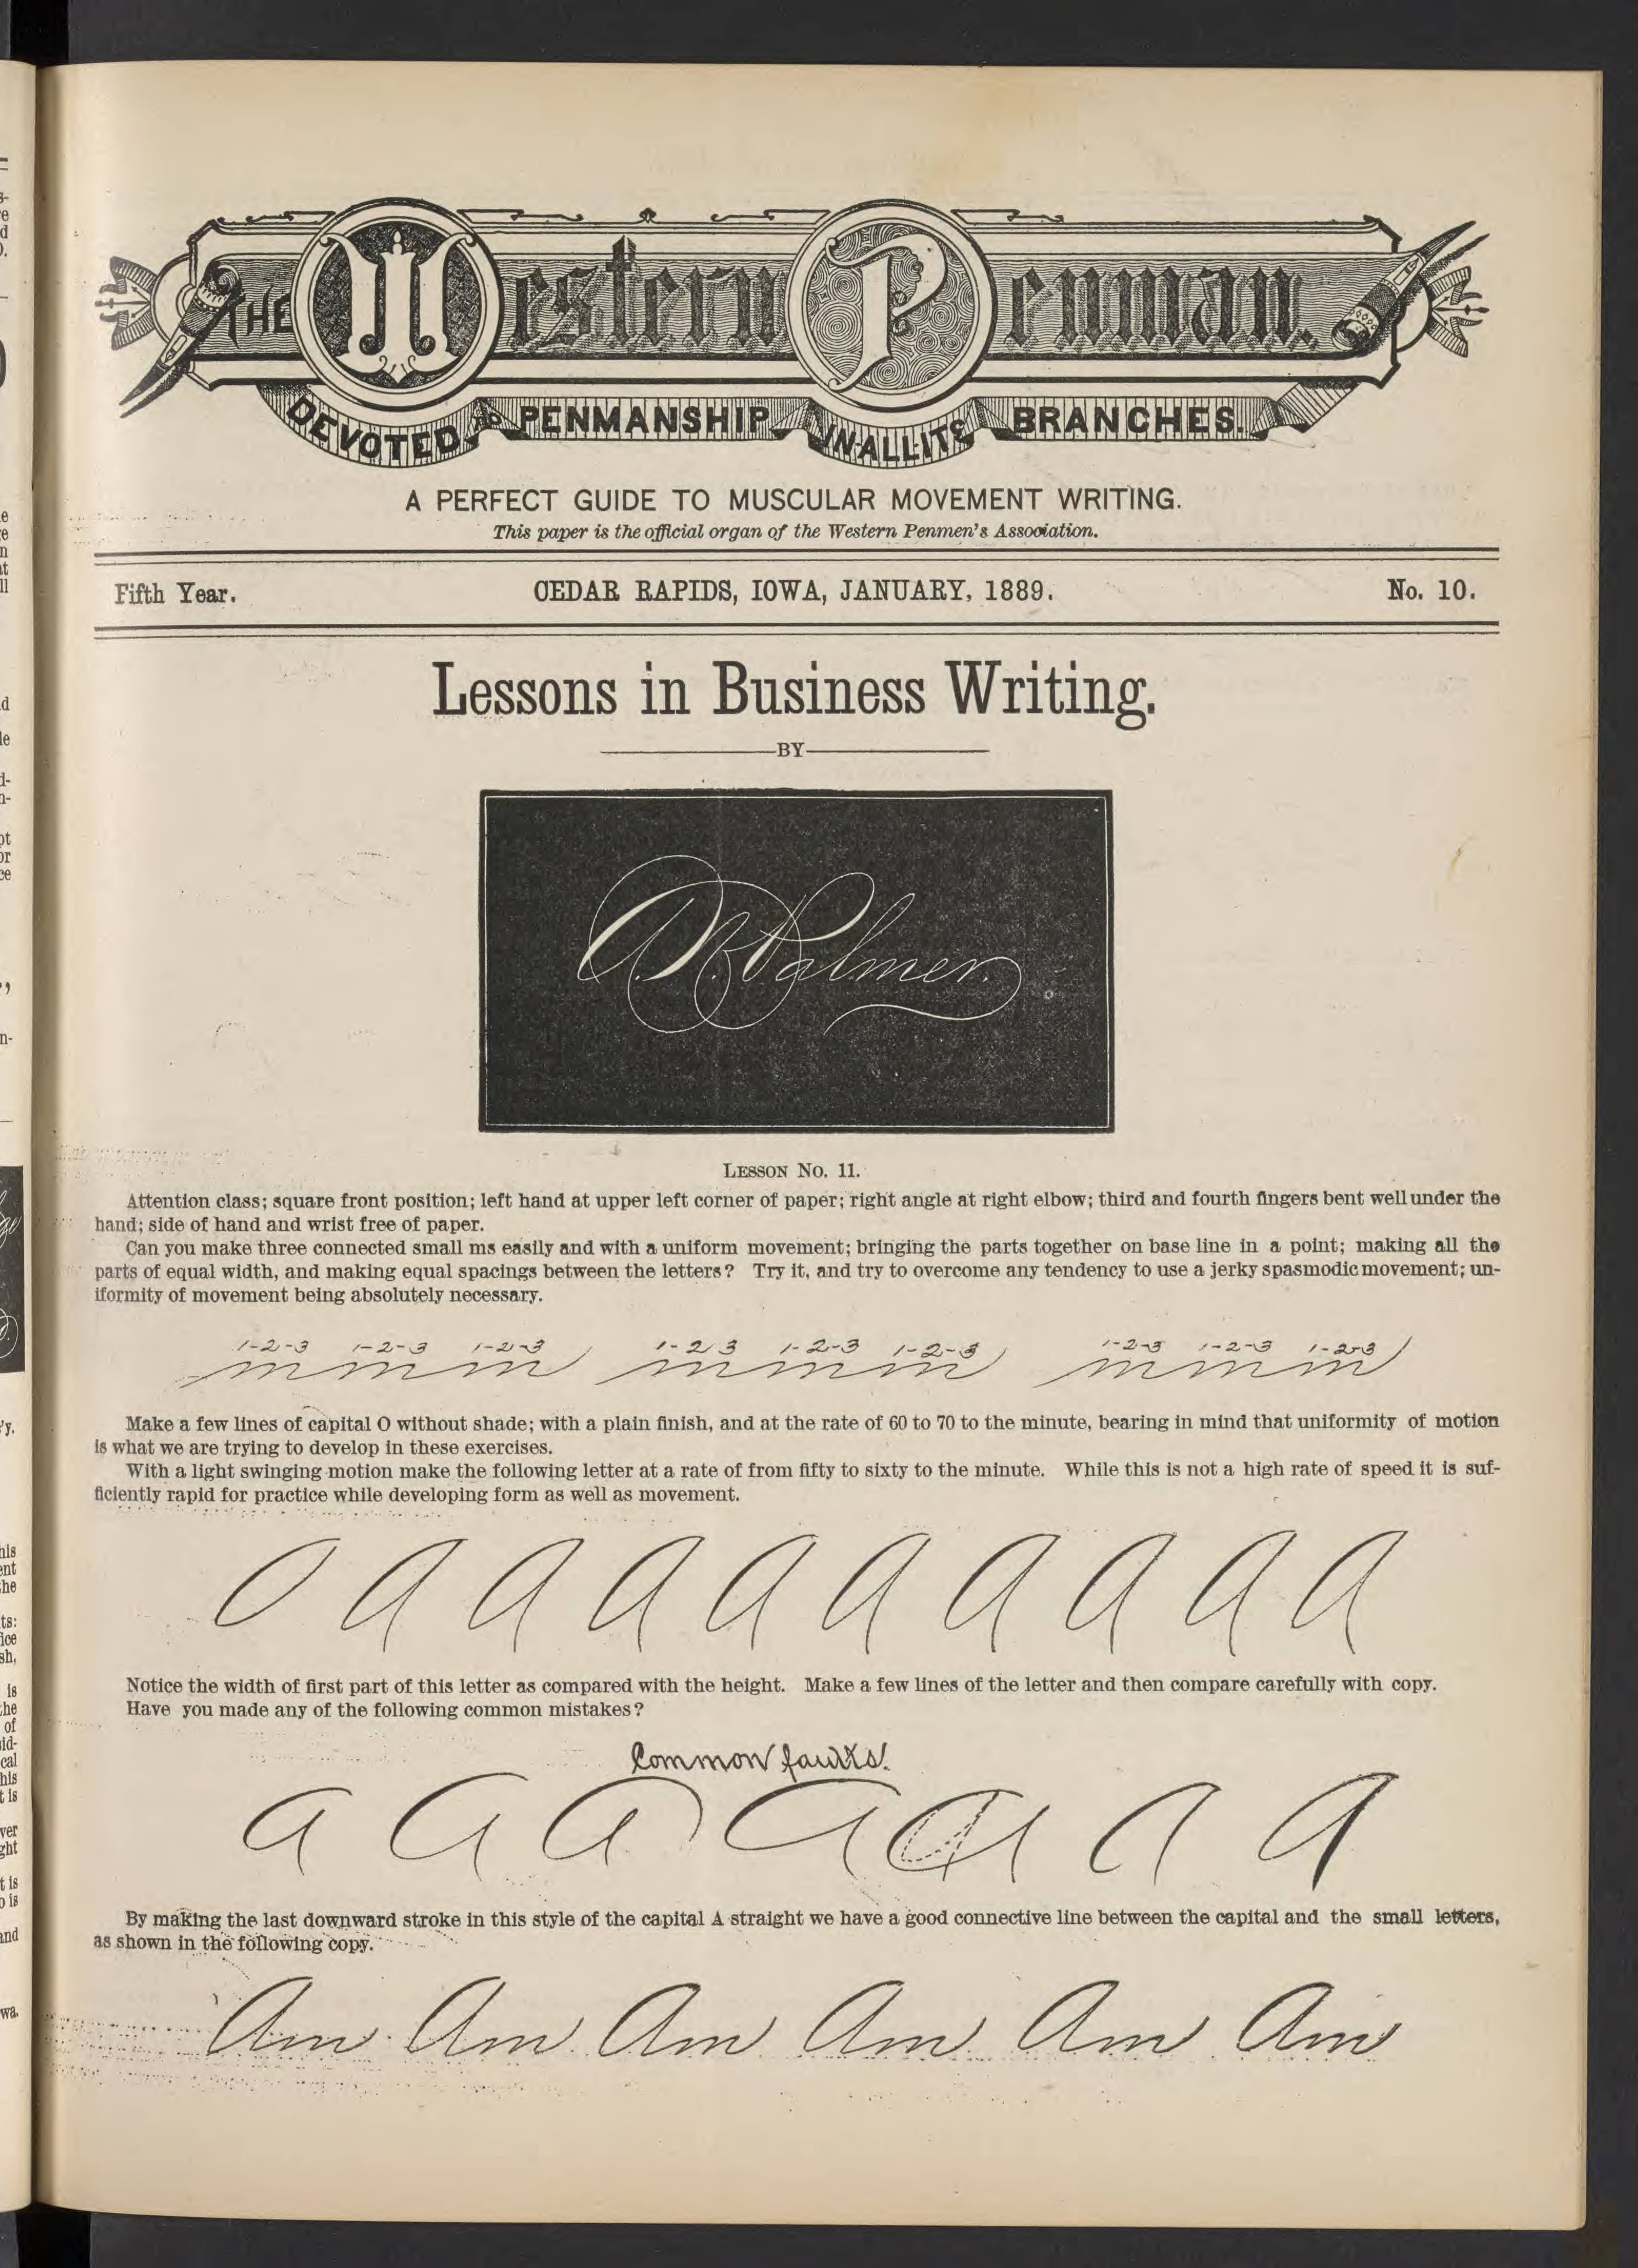 THE Western Penman.
DEVOTED TO PENMANSHIP IN ALL ITS BRANCHES.
A PERFECT GUIDE TO MUSCULAR MOVEMENT WRITING.
This paper is the official organ of the Western Penmen's Association.
Fifth Year. CEDAR RAPIDS, IOWA, JANUARY, 1889. No. 10.
Lessons in Business Writing.
BY
A. N. Palmer.
LESSON NO. 11.
Attention class; square front position; left hand at upper left corner of paper; right angle at right elbow; third and fourth fingers bent well under the
hand; side of hand and wrist free of paper.
Can you make three connected small ms easily and with a uniform movement; bringing the parts together on base line in a point; making all the
parts of equal width, and making equal spacings between the letters? Try it, and try to overcome any tendency to use a jerky spasmodic movement; un-
iformity of movement being absolutely necessary.
1-2-3 1-2-3 1-2-3 1-2-3 1-2-3 1-2-3 1-2-3 1-2-3 1-2-3
m m m m m m m m m
Make a few lines of capital O without shade; with a plain finish, and at the rate of 60 to 70 to the minute, bearing in mind that uniformity of motion
is what we are trying to develop in these exercises.
With a light swinging motion make the following letter at a rate of from fifty to sixty to the minute. While this is not a high rate of speed it is suf-
ficiently rapid for practice while developing form as well as movement.
O A A A A A A A A A
Notice the width of first part of this letter as compared with the height. Make a few lines of the letter and then compare carefully with copy.
Have you made any of the following common mistakes?
Common faults.
A A A A A A A A
By making the last downward stroke in this style of the capital A straight we have a good connective line between the capital and the small letters,
as shown in the following copy.
Am Am Am Am Am Am